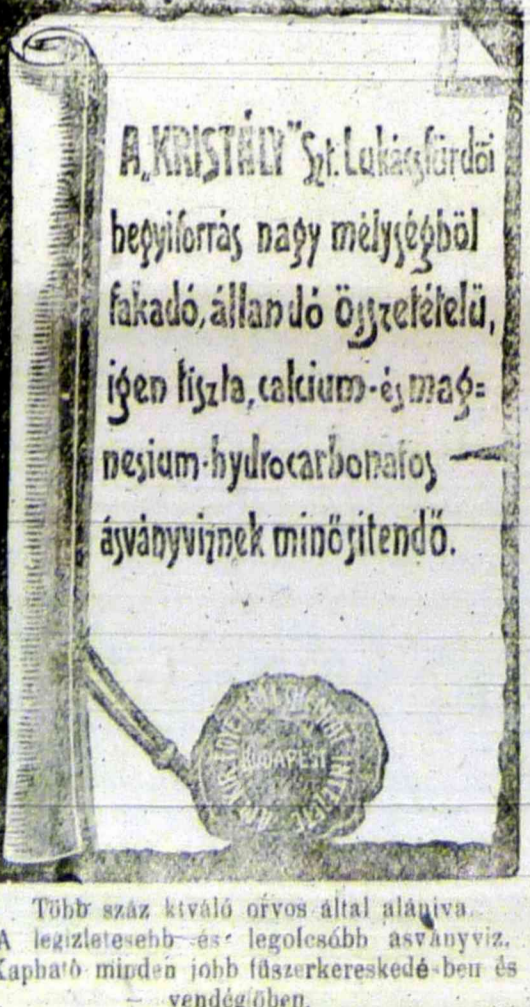 A „KRISTÁLY" Szt. Lukácsfürdői
hegyiforrás nagy mélységből
fakadó, állandó összetételű,
igen tiszta, calcium- és mag=
nesium-hydrocarbonatos
ásványviznek minősitendő.
BUDAPEST
Több száz kiváló orvos által ajánlva.
A legizletesebb és legolcsóbb ásványviz.
Kapható minden jobb fűszerkereskedé-ben és
— vendéglőben.